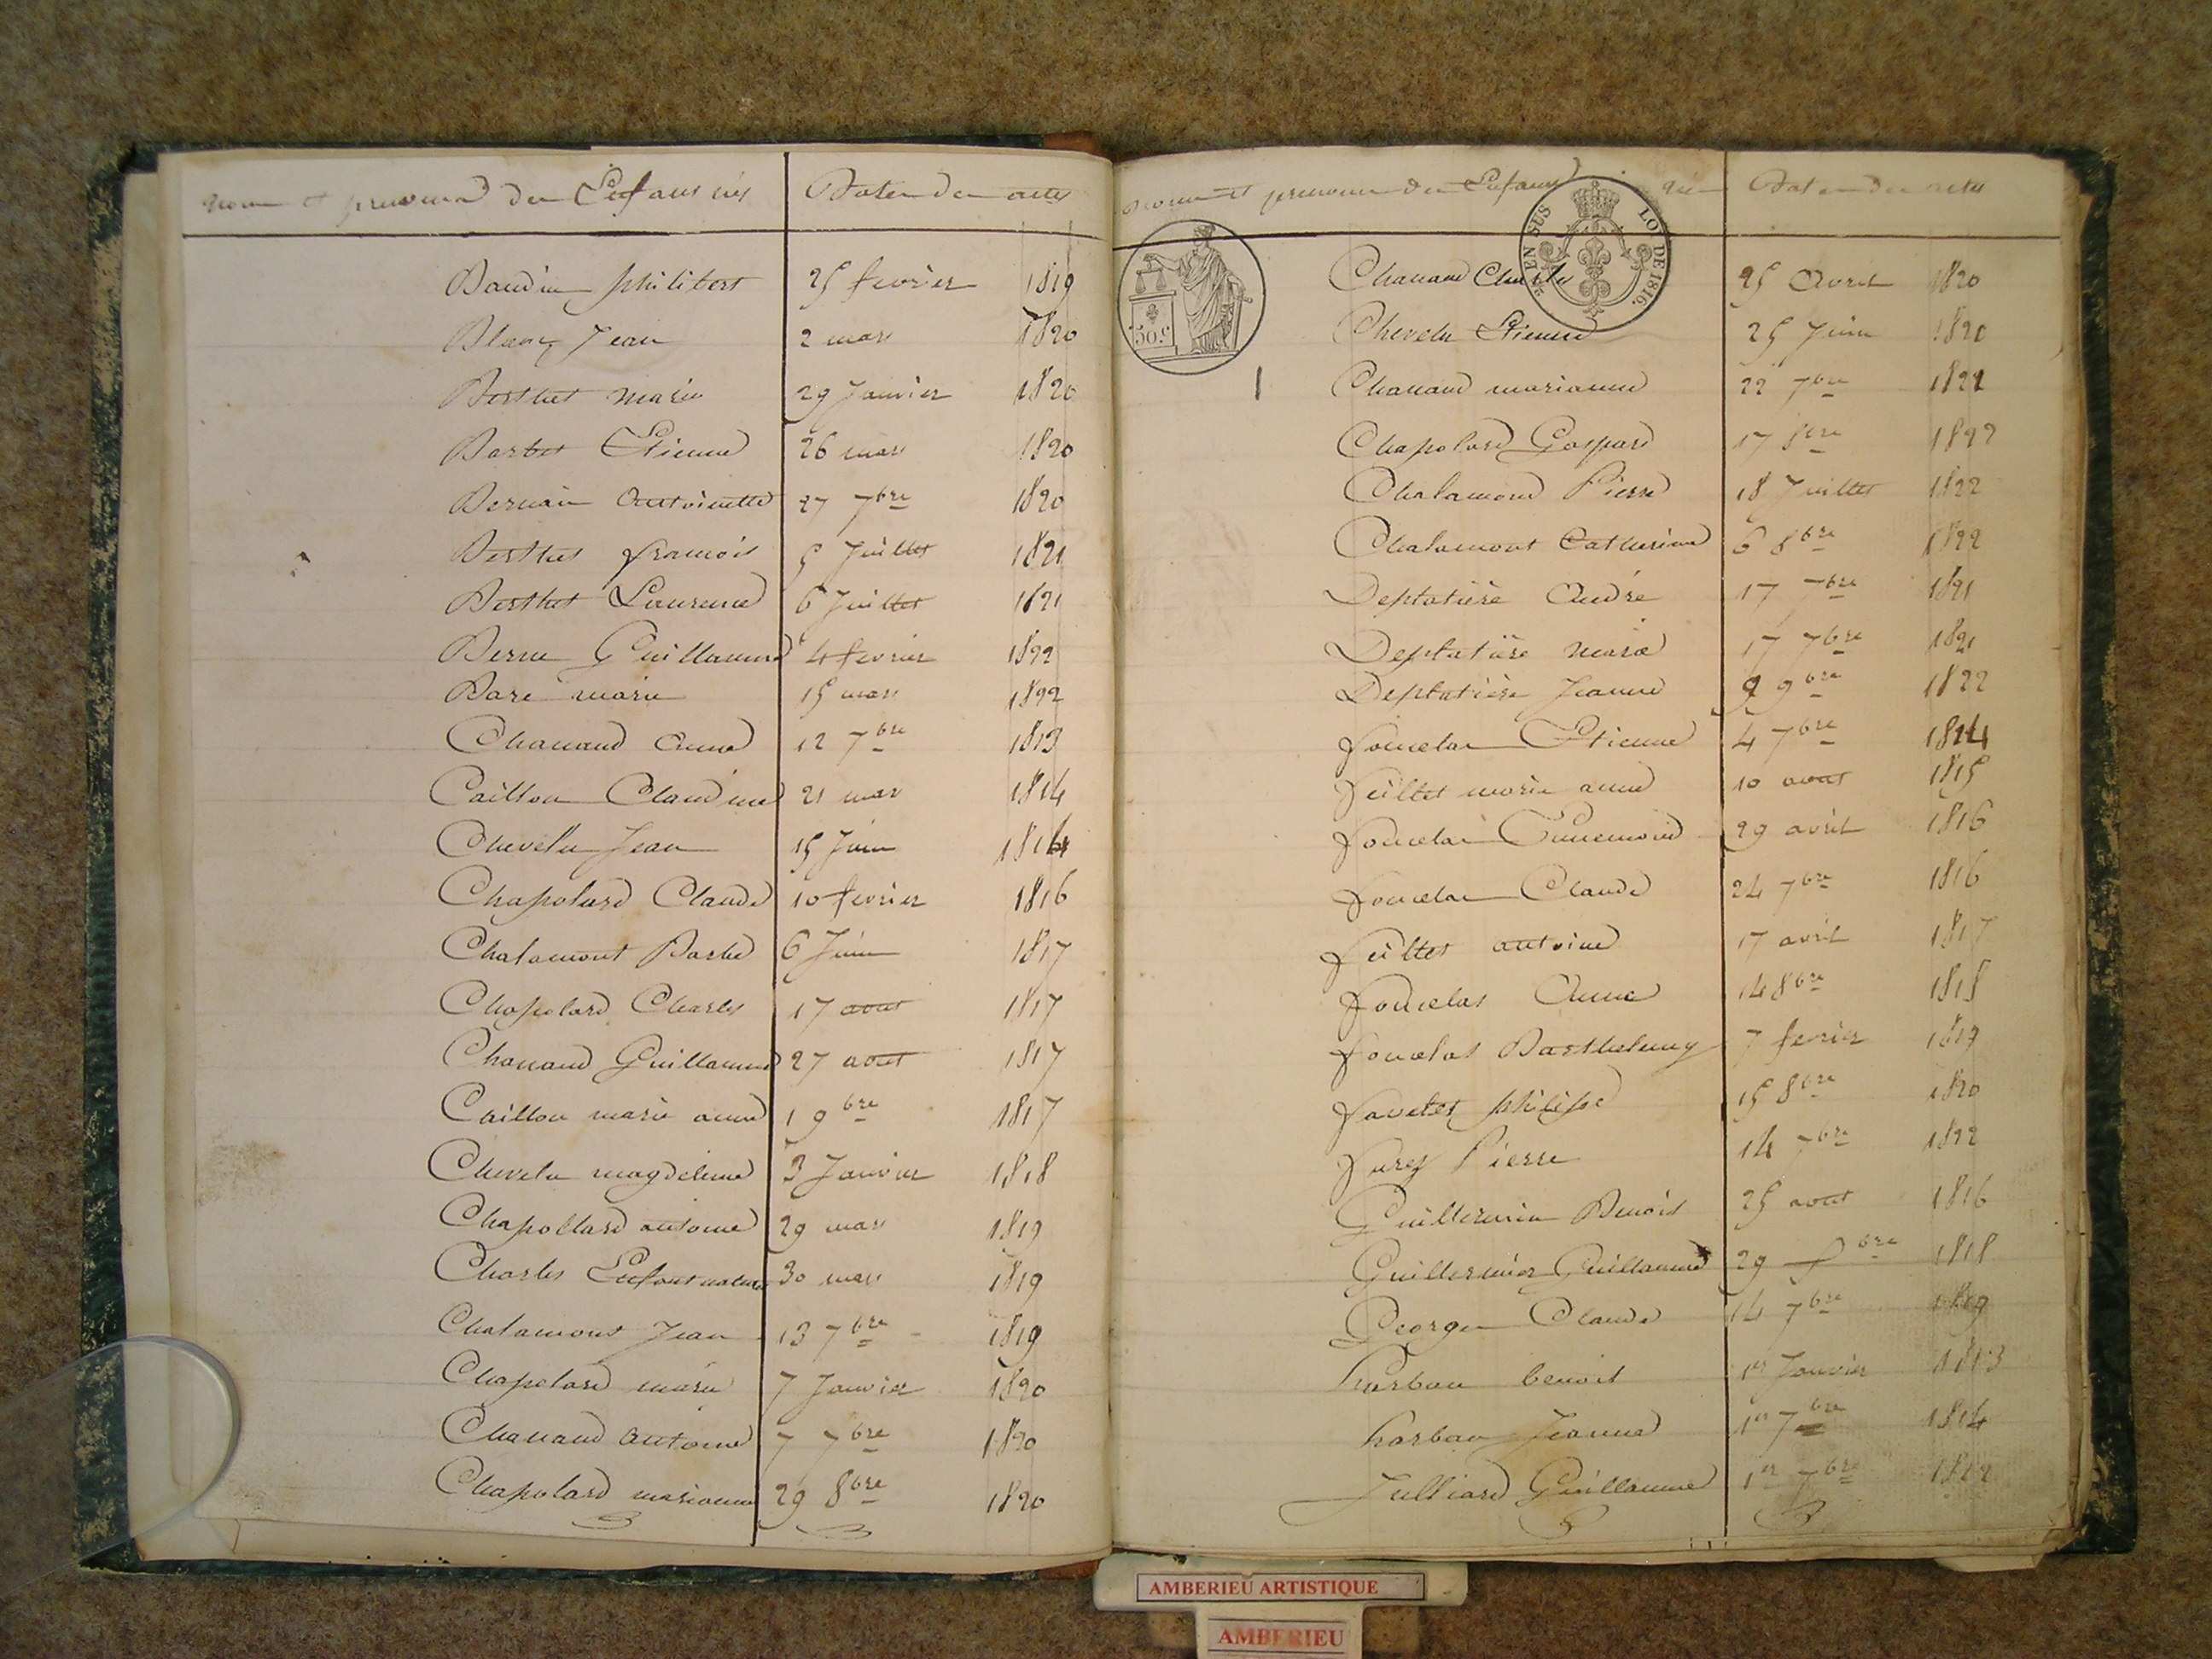 nom et prenoms des Enfans nés Dates des actes
Baudin philibert 25 fevrier 1819
Blanc Jean 2 mars 1820
Berthet Marie 29 Janvier 1820
Barbet Etienne 26 mars 1820
Bernain Antoinette 27 7bre 1820
Berthet françois 5 Juillet 1821
Berthet Laurence 6 Juillet 1821
Berne Guillaume 4 fevrier 1822
Bare marie 15 mars 1822
Chanand Anne 12 7bre 1813
Caillou Claudine 21 mars 1814
Chevelu Jean 15 Juin 1814
Chapolard Claude 10 fevrier 1816
Chalamont Barbe 6 Juin 1817
Chapolard Charles 17 aout 1817
Chanand Guillaume 27 aout 1817
Caillou marie anne 1 9bre 1817
Chevelu magdeleine 3 Janvier 1818
Chapollard antoine 29 mars 1819
Charles Enfant naturel 30 mars 1819
Chalamont Jean 13 7bre 1819
Chapolard marie 7 Janvier 1820
Chanand Antoine 7 7bre 1820
Chapolard marianne 29 8bre 1820
nom et prenoms des Enfans nés Dates des actes
EN SUS LOI DE 1816.
50c
Chanand Charles 25 Avril 1820
Chevelu Etienne 25 Juin 1820
Chanand marianne 22 7bre 1821
Chapolard Gaspard 17 8bre 1822
Chalamond Pierre 18 Juillet 1822
Chalamont Catherine 6 8bre 1822
Deplatière André 17 7bre 1821
Deplatière Marie 17 7bre 1821
Deplatière Jeanne 9 9bre 1822
Etienne 4 7bre 1814
feillet marie anne 10 aout 1815
29 avril 1816
Claude 24 7bre 1816
feillet antoine 17 avril 1817
Anne 14 8bre 1818
Barthelemy 7 fevrier 1819
philippe 15 8bre 1820
furey Pierre 14 7bre 1822
Guillermin Benoit 25 aout 1816
Guillermin Guillaume 29 bre 1818
George Claude 14 7bre 1819
benoit 1er Janvier 1813
Jeanne 1er 7bre 1814
Julliard Guillaume 1er 7bre 1822
AMBERIEU ARTISTIQUE
AMBERIEU